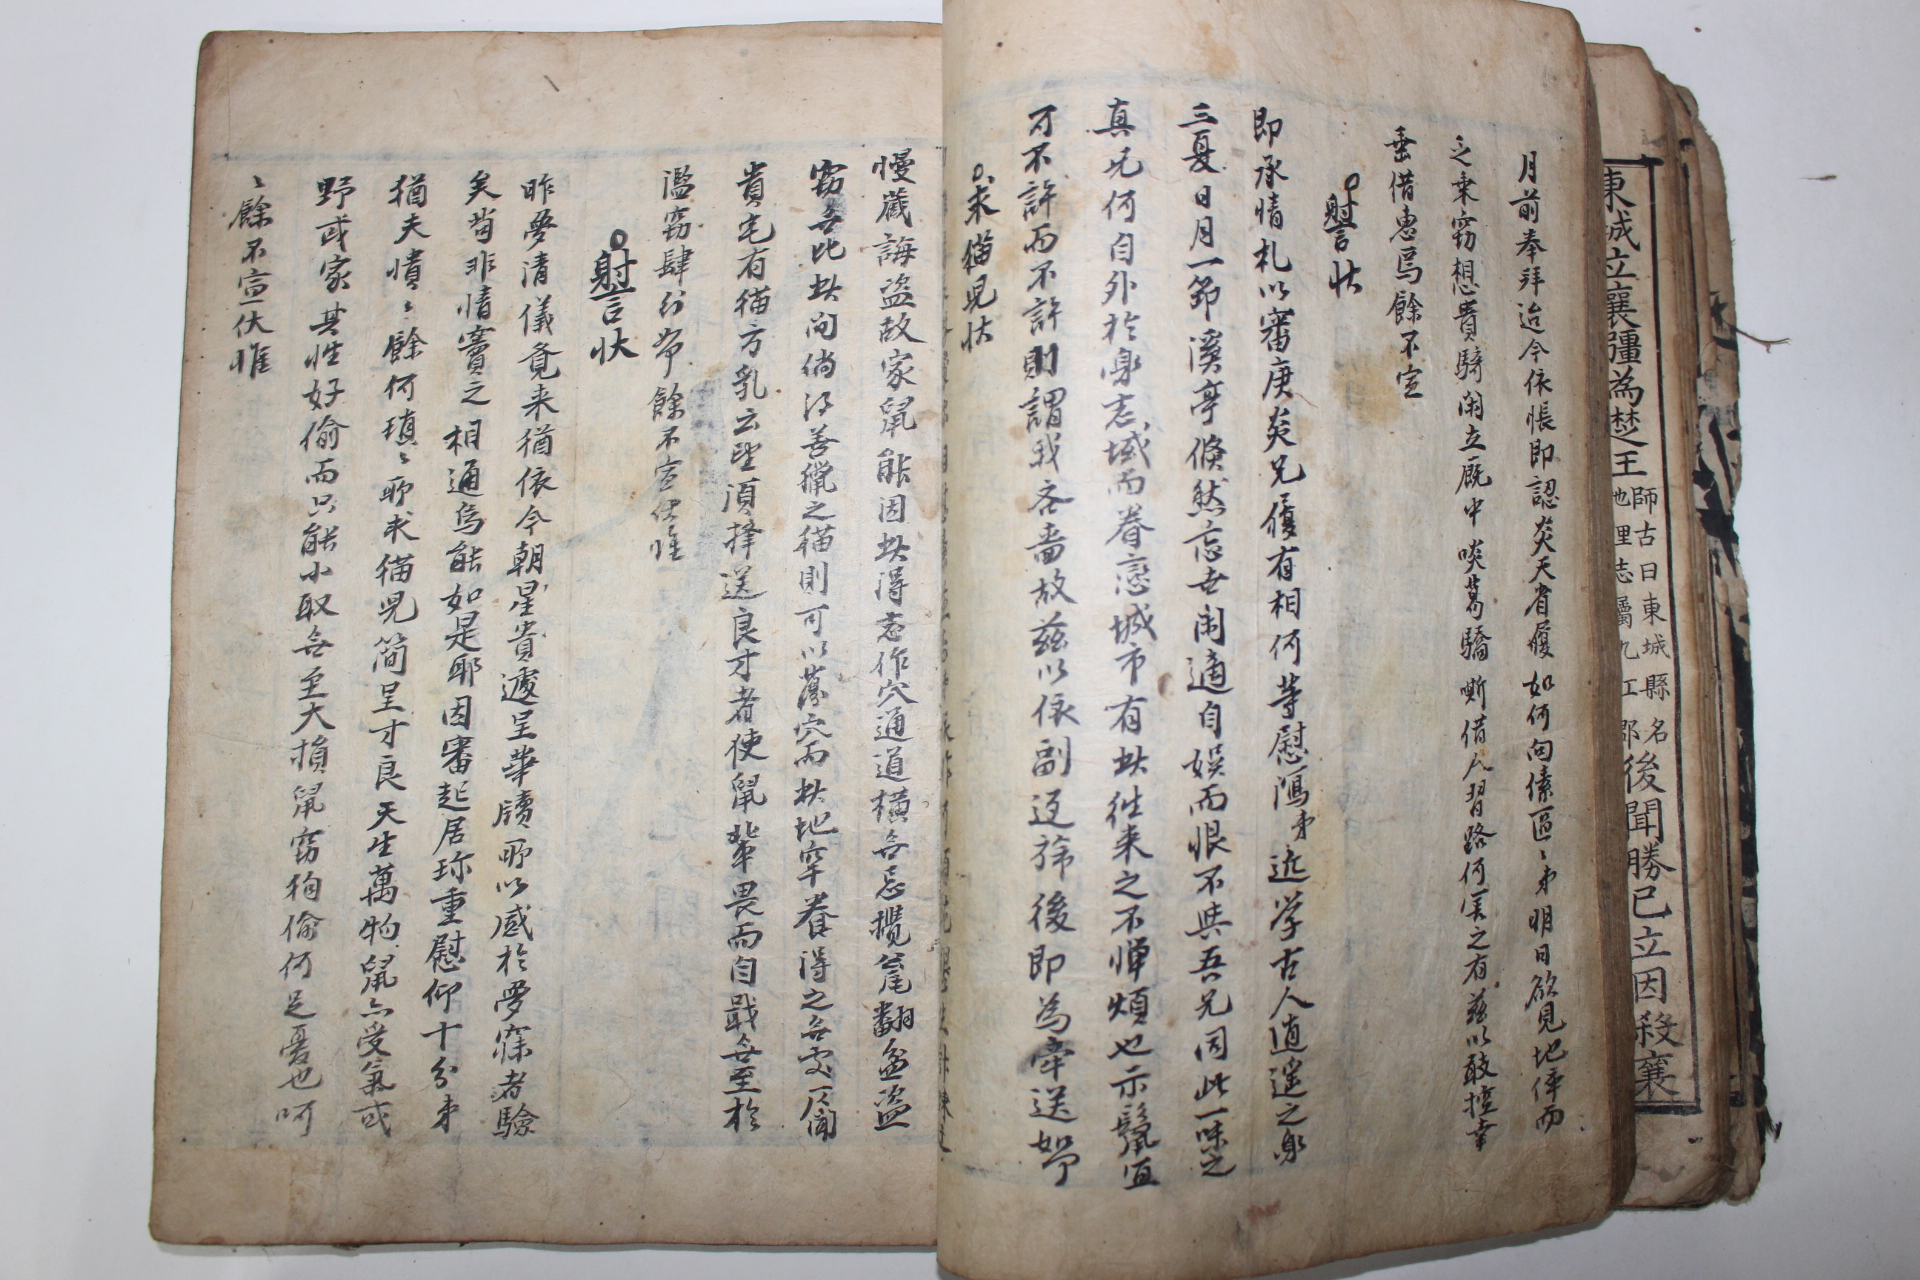 月前奉拜迨今依悵即認炎天省履如何向傃區〻弟明日欲見地倅而
之乘窃想貴騎閑立厩中啖蒭驕嘶借人習路何害之有玆以敢控幸
垂借惠焉餘不宣
答狀
即承情札以審庚炎兄履有相何等慰濶弟近学古人逍遥之身
三夏日月一節溪亭倏然忘世閑適自娱而恨不與吾兄同此一味之
真兄何自外於身志城而眷戀城市有此徃来之不憚煩也示鬣宜
可不許而不許則謂我吝嗇故玆以依副返旆後即為牽送如
求猫兒狀
慢藏誨盜故家鼠能因此得志作穴通道橫無忌攪瓮翻盆盜
窃無比此間倘得善獵之猫則可以蕩穴而此地罕養得之無處聞
貴宅有猫方乳云望須擇送良才者使鼠輩畏而自戢無至於
濫窃肆行希餘不宣伏惟
答狀
昨夢清儀覔来猶依今朝星貴遽呈華牘所以感於夢寐者驗
矣苟非情竇之相通烏能如是耶因審起居珎重慰仰十分弟
猶夫憒〻餘何瑣〻所求猫兒簡呈才良天生萬物鼠亦受氣或
野或家其性好偷而只能小取無至大損鼠窃狗偷何足憂也呵
〻餘不宣伏惟
東城立襄彊為楚王
師古曰東城縣名
地理志屬九江郡
後聞勝已立因殺襄